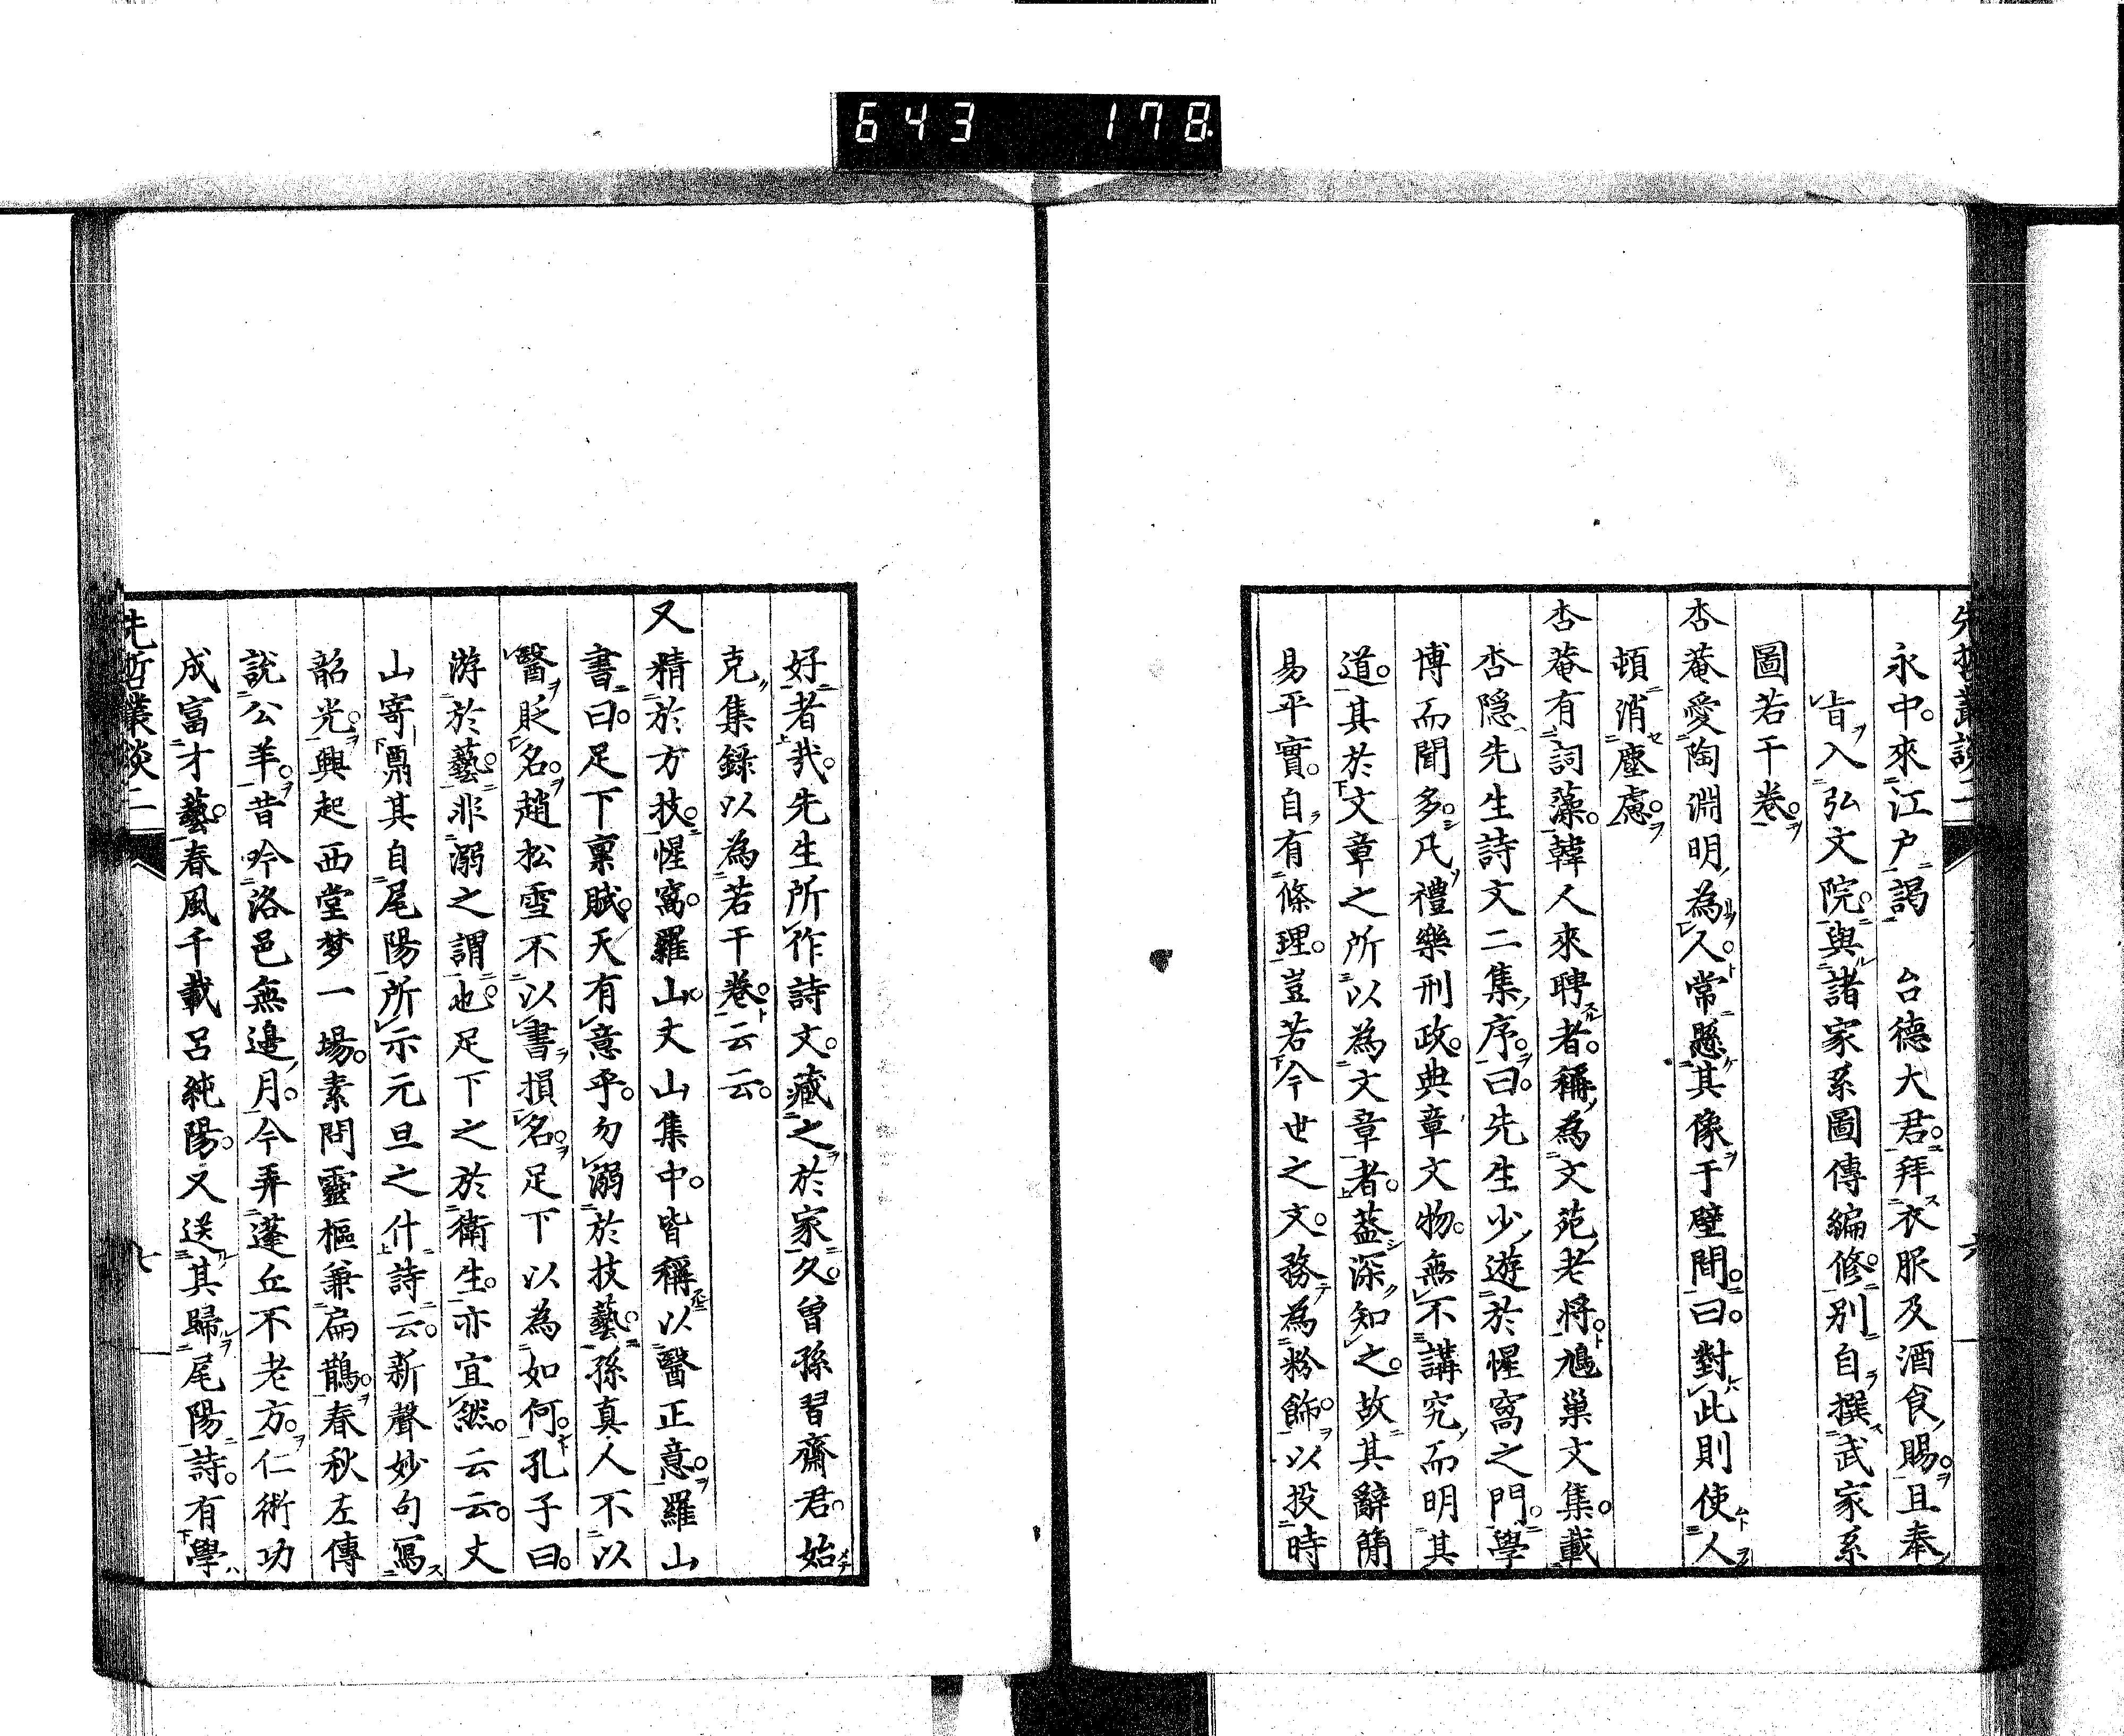 643 178
先哲叢談二 六
永中。來江戶。謁 台德大君。拜衣服及酒食賜。且奉
旨入弘文院。與諸家系圖傳編修。別自撰武家系
圖若干卷。
杏菴愛陶淵明為人。常懸其像于壁間。曰。對此則使人
頓消塵慮。
杏菴有詞藻。韓人來聘者。稱為文苑老將。鳩巢文集。載
杏隱先生詩文二集序。曰。先生少遊於惺窩之門。學
博而聞多。凡禮樂刑政。典章文物。無不講究。而明其
道。其於文章之所以為文章者。蓋深知之。故其辭簡
易平實。自有條理。豈若今世之文。務為粉飾。以投時
好者哉。先生所作詩文。藏之於家久。曾孫習齋君。始
克集錄以為若干卷。云云。
又精於方技。惺窩。羅山。丈山集中。皆稱以醫正意。羅山
書曰。足下稟賦。天有意乎。勿溺於技藝。孫真人不以
醫貶名。趙松雪不以書損名。足下以為如何。孔子曰。
游於藝。非溺之謂也。足下之於衛生。亦宜然。云云。丈
山寄鼎其自尾陽所示元旦之什詩云。新聲妙句寫
韶光。興起西堂梦一場。素問靈樞兼扁鵲。春秋左傳
說公羊。昔吟洛邑無邊月。今弄蓬丘不老方。仁術功
成富才藝。春風千載呂純陽。又送其歸尾陽詩。有學
先哲叢談二 七